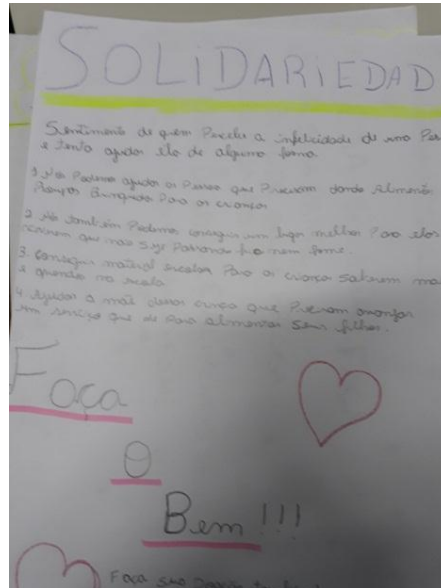 SOLiDARiEDAD
Sentimento de quem Percebe a infelicidade de uma Pes
e tenta ajudar ela de alguma forma
1 Nós Podemos ajudar as Pessoa que Precisam dando Alimento
Roupas Brinquedo Para as crianças
2 Nós também Podemos conseguir um lugar melhor Para elas
que não frio nem fome.
3. Conseguir material escolar Para as criança saberem ma
e na escola
4. Ajudar a mãe dessas que Precisam arranjar
um serviço que dê Para alimentar Seus filhos.
Faça
O
Bem!!!
Faça sua